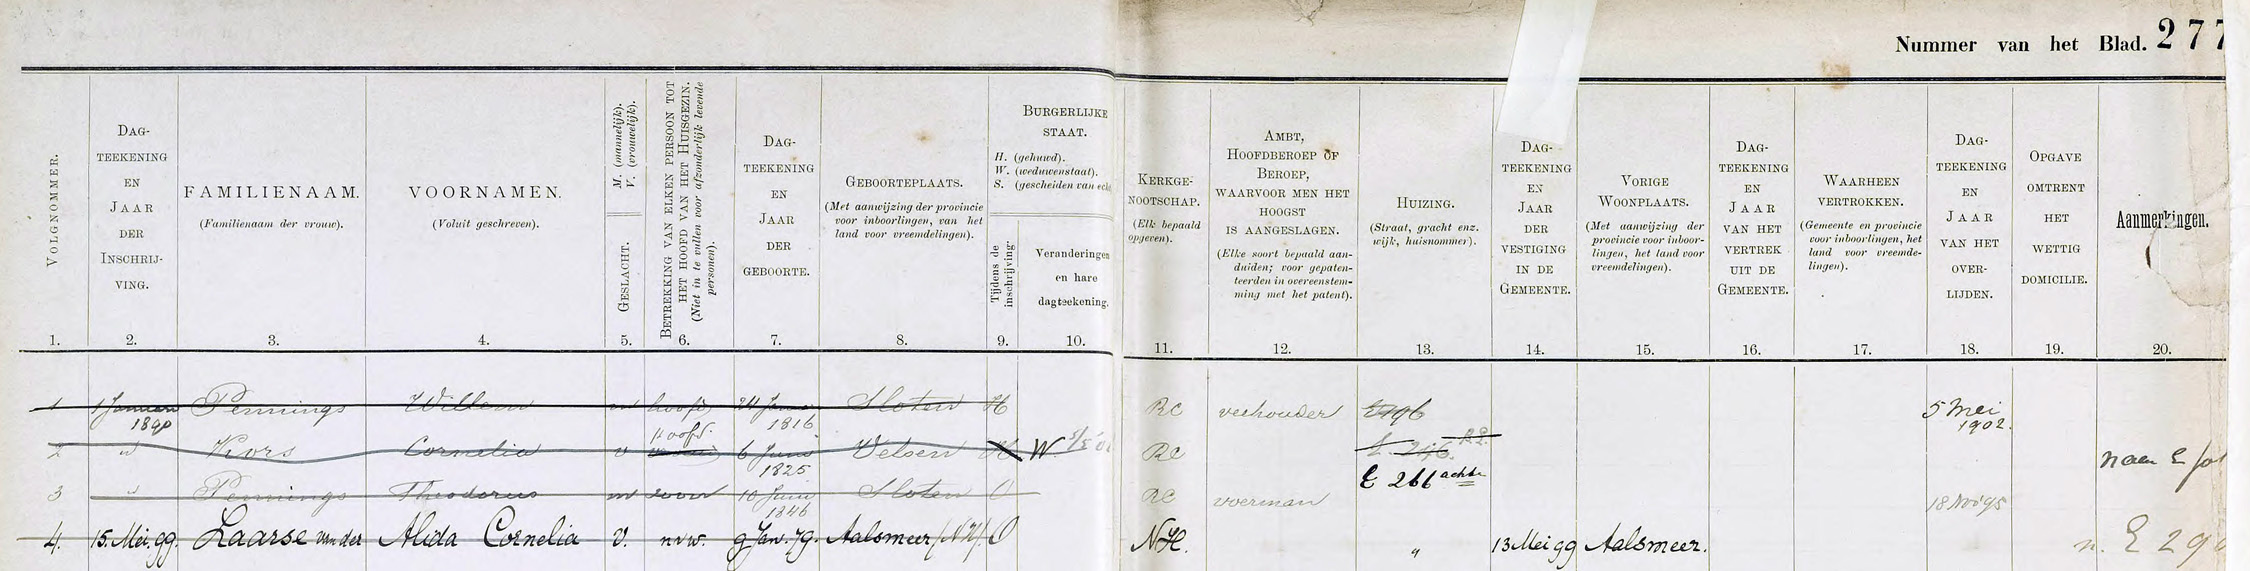 Nummer van het Blad. 277
VOLGNOMMER.
DAG-
TEEKENING
EN
JAAR
DER
INSCHRIJ-
VING.
FAMILIENAAM.
(Familienaam der vrouw).
VOORNAMEN.
(Voluit geschreven).
M. (mannelijk).
V. (vrouwelijk).
GESLACHT.
BETREKKING VAN ELKEN PERSOON TOT
HET HOOFD VAN HET HUISGEZIN.
(Niet in te vullen voor afzonderlijk levende
personen).
DAG-
TEEKENING
EN
JAAR
DER
GEBOORTE.
GEBOORTEPLAATS.
(Met aanwijzing der provincie
voor inboorlingen, van het
land voor vreemdelingen).
BURGERLIJKE
STAAT.
H. (gehuwd).
W. (weduwenstaat).
S. (gescheiden van echt
Tijdens de
inschrijving.
Veranderingen
en hare
dagteekening.
KERKGE-
NOOTSCHAP.
(Elk bepaald
opgeven).
AMBT,
HOOFDBEROEP OF
BEROEP,
WAARVOOR MEN HET
HOOGST
IS AANGESLAGEN.
(Elke soort bepaald aan-
duiden; voor gepaten-
teerden in overeenstem-
ming met het patent).
HUIZING.
(Straat, gracht enz.
wijk, huisnommer).
DAG-
TEEKENING
EN
JAAR
DER
VESTIGING
IN DE
GEMEENTE.
VORIGE
WOONPLAATS.
(Met aanwijzing der
provincie voor inboor-
lingen, het land voor
vreemdelingen).
DAG-
TEEKENING
EN
JAAR
VAN HET
VERTREK
UIT DE
GEMEENTE.
WAARHEEN
VERTROKKEN.
(Gemeente en provincie
voor inboorlingen, het
land voor vreemde-
lingen).
DAG-
TEEKENING
EN
JAAR
VAN HET
OVER-
LIJDEN.
OPGAVE
OMTRENT
HET
WETTIG
DOMICILIE.
Aanmerkingen.
1. 2. 3. 4. 5. 6. 7. 8. 9. 10. 11. 12. 13. 14. 15. 16. 17. 18. 19. 20.
1 1 Januari 1890 Pennings Willem m hoofd 24 1816 Sloten H RC veehouder E196 5 Mei 1902.
2 " Kors Cornelia v hoofd. 6 Juni 1825 Velsen H W. RC
E 266 achter naar E fol
3 " Pennings Theodorus m zoon 10 Juni 1846 Sloten O RC voerman 18 Nov 95
4. 15. Mei. 99. Laarse van der Alida Cornelia V. 9 Jan. 79. Aalsmeer (N.H.) O N.H. " 13 Mei 99 Aalsmeer. n. E 29